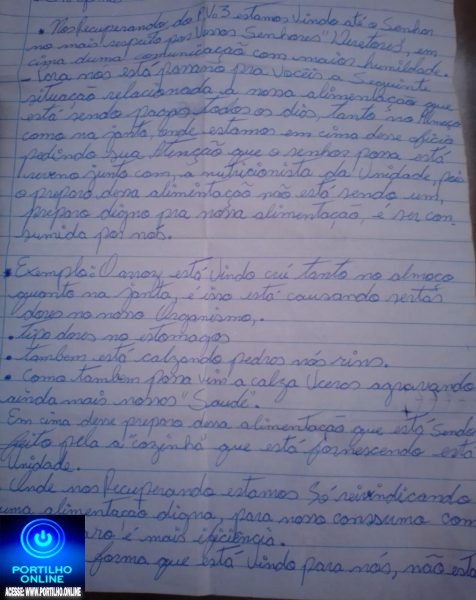 • Nos Recuperando do PV.3 estamos vindo até o Senhor
no mais respeito por Vossos Senhores "Diretores, em
cima duma comunicação com maior humildade.
está passano pra Vocêis a Seguinte
situação relacionada a nossa alimentação que
está sendo propos todos os dias, tanto no Almoço
como na janta, onde estamos em cima desse ofício
pedindo sua Atenção que o senhor possa está
reveno junto com, a nutricionista da Unidade, pois
o preparo dessa alimentação não está sendo um,
preparo digno pra nossa alimentação, e ser con-
sumida por nós.
• Exemplo: O arroz está vindo crú tanto no almoço
quanto na janta, é isso está causando sertas
dores no nosso Organismo,.
• tipo dores no estomagos
• tambem está calzando pedras nós rins.
• Como tambem possa vim a calza Uceros agravando
ainda mais nossos "Saude".
Em cima desse preparo dessa alimentação que está sendo
feito pela a "cozinha" que está fornescendo está
Unidade.
Onde nos Recuperando estamos Só reivindicando
uma alimentação digna, para nosso consumo com
é mais eficiencia.
forma que está vindo para nós, não esta
PORTILHO
ONLINE
ACESSE: WWW.PORTILHO.ONLINE